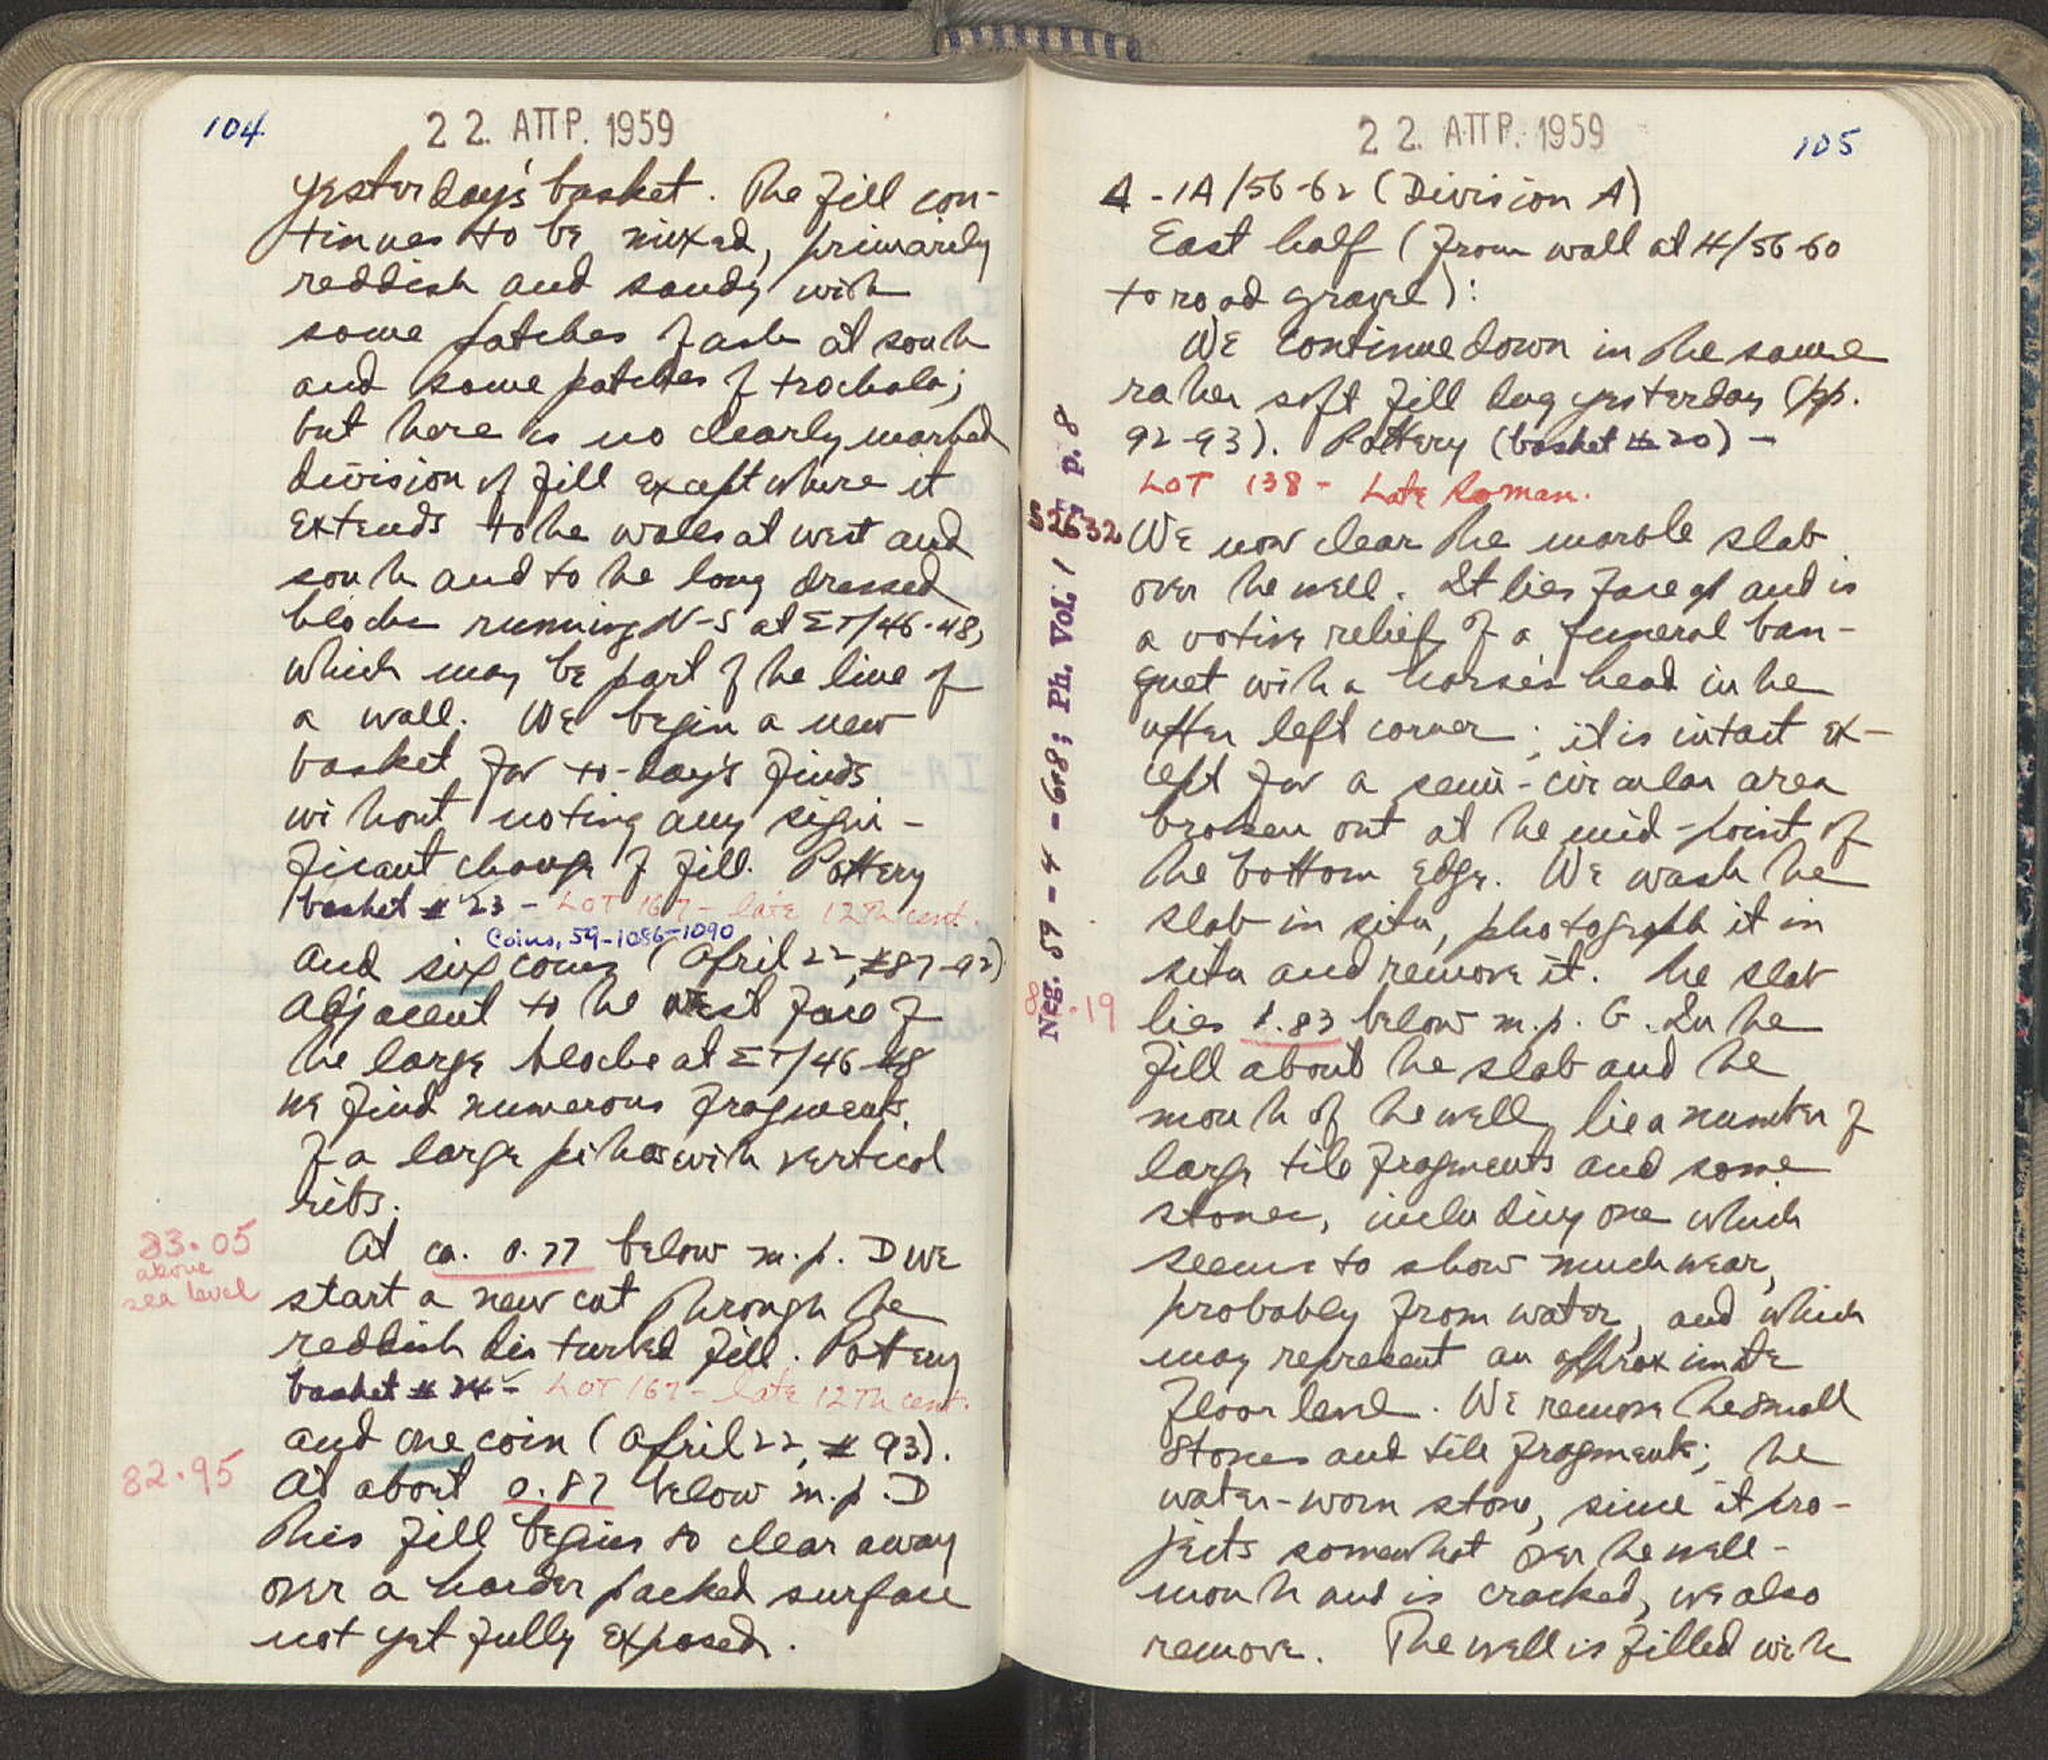 104
22. ΑΠΡ. 1959
yesterday's basket. The fill con-
tinues to be mixed, primarily
reddish and sandy with
some patches of ash at south
and some patches of trochala;
but there is no clearly marked
division of fill except where it
extends to the walls at west and
south and to the long dressed
blocks running N-S at ΣΤ/46-48,
which may be part of the line of
a wall. We begin a new
basket for to-day's finds
without noting any signi-
ficant change of fill. Pottery
basket # 23 - LOT 167 - late 12th cent.
Coins, 59-1086-1090
and six coins (April 22, #87-92)
Adjacent to the west face of
the large blocks at ΣΤ/46-48
we find numerous fragments
of a large pithos with vertical
ribs.
83.05
above
sea level
At ca. 0.77 below m.p. D we
start a new cut through the
reddish disturbed fill. Pottery
basket # 24 - LOT 167 - late 12th cent.
and one coin (April 22, # 93).
82.95
At about 0.87 below m.p. D
this fill begins to clear away
over a harder packed surface
not yet fully exposed.
22. ΑΠΡ. 1959
105
A-1A/56-62 (Division A)
East half (from wall at H/56-60
to road gravel):
We continue down in the same
rather soft fill dug yesterday (pp.
92-93). Pottery (basket # 20) -
LOT 138 - Late Roman.
S2632
Neg. 59-4-6,8; Ph. Vol. I p. 8
We now clear the marble slab
over the well. It lies face up and is
a votive relief of a funeral ban-
quet with a horse's head in the
upper left corner; it is intact ex-
cept for a semi-circular area
broken out at the mid-point of
the bottom edge. We wash the
slab in situ, photograph it in
situ and remove it. The slab
lies 1.83 below m.p. G. In the
fill about the slab and the
mouth of the well lie a number of
large tile fragments and some
stones, including one which
seems to show much wear,
probably from water, and which
may represent an approximate
floor level. We remove the small
stones and tile fragments; the
water-worn stone, since it pro-
jects somewhat over the well-
mouth and is cracked, we also
remove. The well is filled with